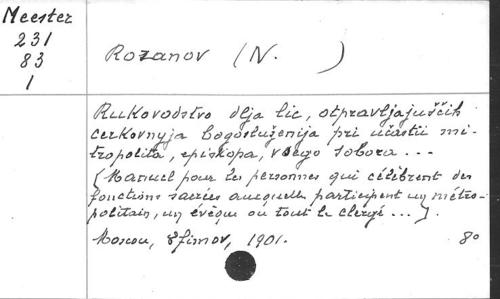 Meester
231
83
1
Rozanov (N. )
Rukovodstvo dlja lic, otpravljajuščih
cerkovnyja bogosluženija pri učastii mi-
tropolita, episkopa, vsego sobora ...
{Manuel pour les personnes qui célèbrent des
fonctions sacrées auxquelles participent un métro-
politain, un évêque ou tout le clergé ... }.
Moscou, Efimov, 1901. 8º